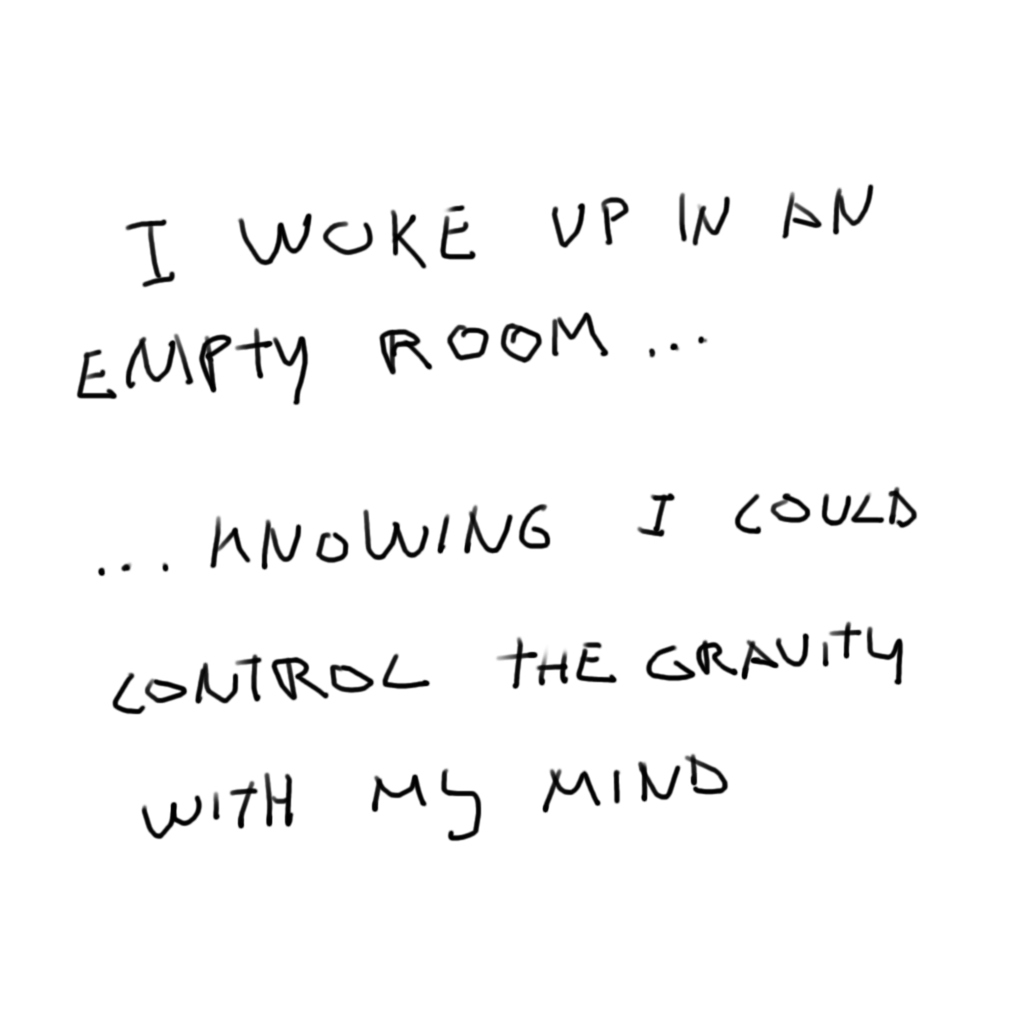 I WOKE UP IN AN
EMPTY ROOM...
...KNOWING I COULD
CONTROL THE GRAVITY
WITH MY MIND